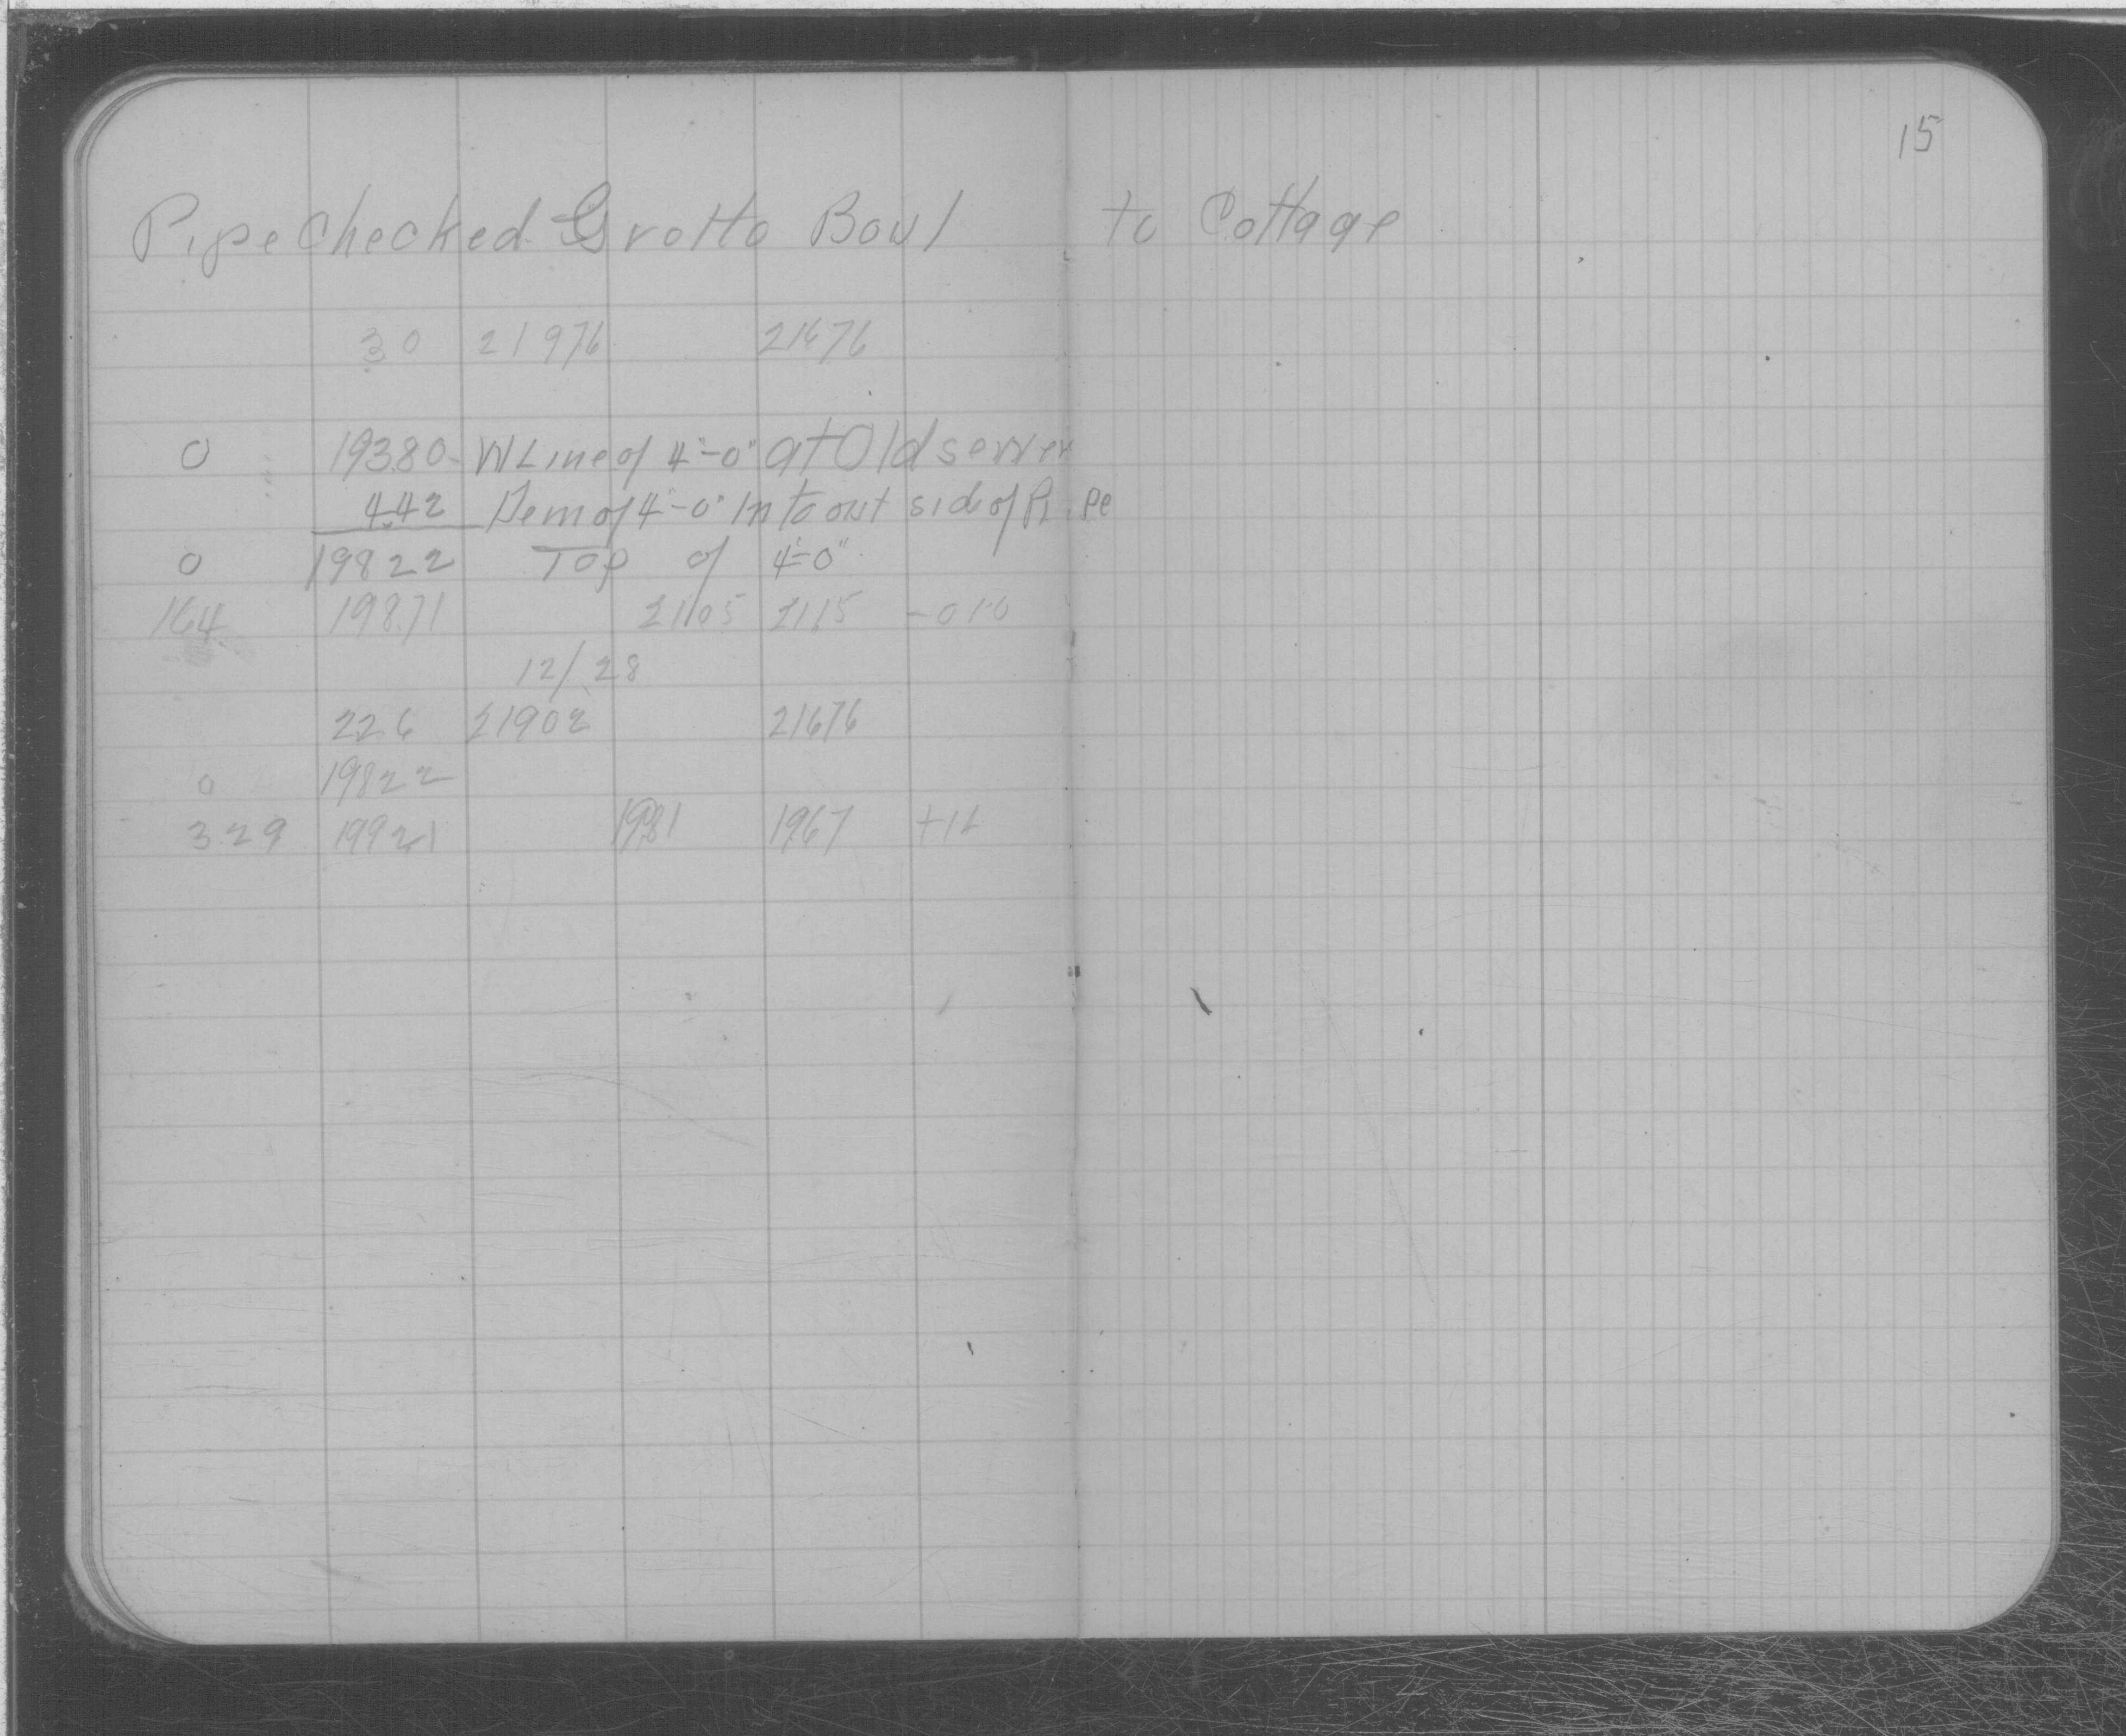 15
Pipe Checked Grotto Bowl to Cottage
30 21976 21676
0 193.80 W Line of 4'-0" at Old sewer
4.42 Dem of 4'-0" In to out side of Pipe
0 198 22 Top of 4'-0"
164 198.71 21 05 21 15 -010
12/28
22 6 21902 21676
0 198 22
329 199 21 1981 1967 +14